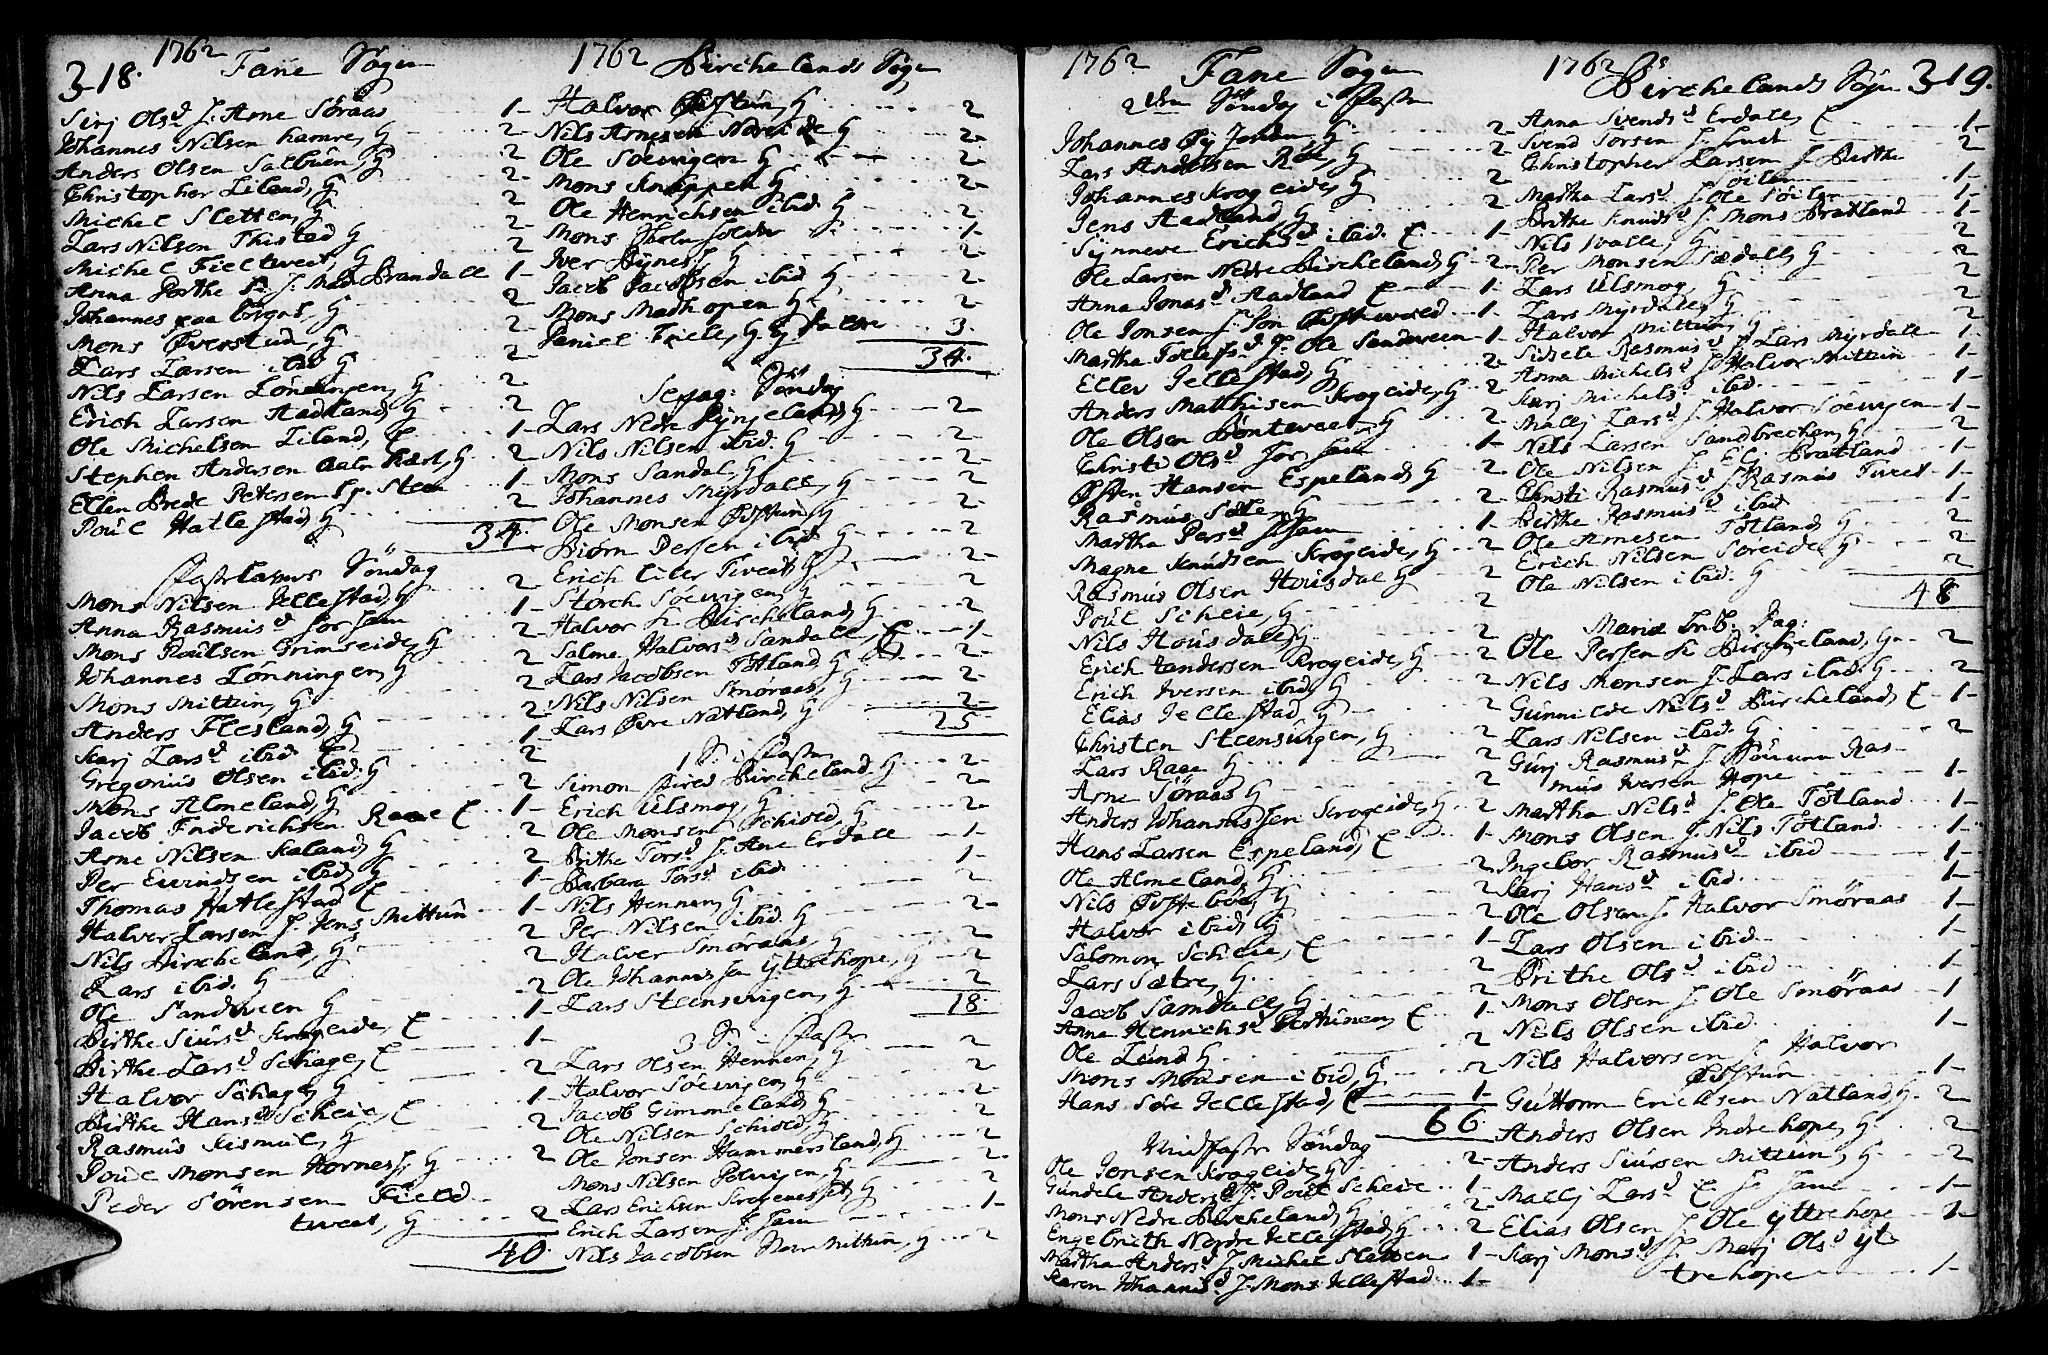 318. 1762 Fane Sogn
Sirj Olsd. J. Arne Söraas 1-
Johannes Nilsen hamre, G 2-
Anders Olsen Salbuen G 2
Christopher Liland, G 2-
Michel Sletten, G 2
Lars Nilsen Thistad G 2
Michel Fieltveet, G 2
Anna J. Mads Brandall 1-
Johannes G 2
Mons Øverstud, G 2
Lars Larsen ibid G 2
Nils Larsen Lönningen, G 2
Erich Larsen Aadland, G 2
Ole Michelsen Liland, E 1-
Stephen Andersen G 2
Ellen Brede Petersen 1-
Poul Hatlestad, G 2
34
Fastelavns Söndag
Mons Nilsen Jellestad, G 2
Anna Rasmusd. 1-
Mons Poulsen Grimseide, G 2
Johannes Lönningen, G 2
Mons Mittun, G 2
Anders Flesland, G 2
Karj Larsd. ibid E 1
Gregorius Olsen ibid. G 2
Mons Almeland, G 2
Jacob Friderichsen Raae E 1-
Arne Nilsen Kaland, G 2
Per Eivindsen ibid, G 2
Thomas Hatlestad E 1-
Halver Larsen J. Jens Mittun 1-
Nils Bircheland, G 2
Lars ibid. G 2
Ole Sandveen G 2
Birthe Siursd. Krogeide, E 1-
Birthe Larsd. Schage, E 1-
Halvor Schage G 2
Birthe Hansd. Scheie, E 1
Rasmus Kismul, G 2
Poul Monsen Hornes, G 2
Peder Sörensen Field
tveet, G 2
40.
1762 Birchelands Sogn
Halvor Østtun, G 2
Nils Arnesen Noreide G 2-
Ole Söevigen G 2
Mons Knappen G 2-
Ole Henrichsen ibid. G 2
Mons 1-
Iver Bynes, G 2
Jacob Jacobsen ibid. G 2
Mons Madhopen G 2
Daniel Fiell, G. 3.
34.
Sexag: Söndag
Lars Nedre Byrjeland, G 2
Nils Nilsen ibid. G 2-
Mons Sandal, G 2
Johannes Myrdall, G 2
Ole Monsen Østtun, G 2
Biörn Persen ibid. G 2
Erich litle Tveet G 2-
Störch Söevigen G 2
Halvor Bircheland, G 2-
Salmé Halvorsd. Sandall, E 1-
Lars Jacobsen Totland, G 2-
Nils Nilsen Smöraas, G 2
Lars Øvre Natland, G 2-
25
1 S. i Faste
Simon Bircheland, G 2-
Erich Ulsmog, G 2-
Ole Monsen Schiold, G 2-
Birthe Torsd. J. Arne Erdall 1-
Barbara Torsd. ibid. 1-
Nils Hennen, G 2
Per Nilsen ibid. G 2-
Halver Smöraas, G 2
Ole Johannissen Yttrehope, G 2
Lars Steensvigen, G 2
18.
3 S. i Faste
Lars Olsen Hennen, G 2
Halvor Söevigen, G 2-
Jacob Gimmeland, G 2
Ole Nilsen Schiold, G 2
Ole Jonsen Hammersland, G 2
Mons Nilsen G 2-
Lars Erichsen G 2
Erich Larsen 1-
Nils Jacobsen Mittun, G 2
1762 Fane Sogn
2den Söndag i Faste
Johannes G 2
Lars Andersen G 2
Johannes Krogeide, G 2
Jens Aadland, G 2
Synneve Erichsd. ibid. E 1-
Ole Larsen Nedre Bircheland, G 2-
Anna Jonasd. Aadland E 1-
Ole Jonsen J. Jon 1-
Martha Tollefsd. J. Ole Sandveen 1-
Eller Jellestad, G 2-
Anders Matthisen Krogeide, G 2
Ole Olsen Böntveet G 2
Christi Olsd. 1-
Østen Hansen Espeland, G 2
Rasmus G 2
Martha Persd. 1-
Magne Knudsen Krogeide, G 2
Rasmus Olsen Housdal G 2
Poul Scheie, G 2
Nils Housdall, G 2
Erich Andersen Krogeide, G 2
Erich Iversen ibid, G 2
Elias Jellestad, G 2
Christen Steensvigen, G 2
Lars Raae G 2
Arne Söraas G 2
Anders Johannissen Krogeide, G 2
Hans Larsen Espeland, E 1-
Ole Almeland, G 2
Nils Østtebøe, G 2
Halvor ibid, G 2
Salomon Scheie, E 1-
Lars Sætre, G 2
Jacob Samdall, G 2
Anna Henrichsd. E 1-
Ole Lund G 2
Mons Monsen ibid, G 2
Hans Söre Jellestad, E 1-
66
Midfaste Söndag
Ole Jonsen Krogeide, G 2-
Gundele Andersd. J. Poul Scheie 1-
Mons Nedre Bircheland, G 2
Engebricth Nedre Jellestad, G 2
Martha Andersd. J. Michel Sletten 1-
Karen Johannisd. J. Mons Jellestad 1-
1762 Birchelands Sogn 319.
Anna Svendsd. Erdall, E 1-
Svend Torsen 2
Christopher Larsen J. Birthe
Söilen 1-
Martha Larsd. J. Ole Söilen 1-
Birthe Knudsd. J. Mons Bratland 1-
Nils G 2
Per Monsen G 2
Lars Ulsmog, G 2
Lars Myrdall, G 2
Halvor Mittun, G 2
Sidsele Rasmusd. J. Lars Myrdall 1-
Anna Michelsd. J. Halvor Mittun 1-
Karj Michelsd. ibid. 1-
Mallj Larsd. J. Halvor Söevigen 1-
Nils Larsen Sandbrechen, G 2
Ole Nilsen J. Bratland 1-
Christi Rasmusd. J. Rasmus Tveet 1-
Birthe Rasmusd. ibid 1-
Ole Arnesen Totland, G 2
Erich Nilsen Soreide G 2
Ole Nilsen ibid. G 2
48
Mariæ Dag:
Ole Persen Bircheland, G 2
Nils Monsen J. Lars ibid. G 2
Gunnilde Nilsd. Bircheland, E 1-
Lars Nilsen ibid. G 2
Gurj Rasmusd. J. Ras-
mus Iversen Hope 1-
Martha Nilsd. J. Ole Totland 1-
Mons Olsen J. Nils Totland 1-
Ingebor Rasmusd. ibid 1-
Karj Hansd. ibid. 1-
Ole Olsen J. Halvor Smöraas 1-
Lars Olsen ibid. 1-
Brithe Olsd. ibid 1-
Mons Olsen J. Ole Smöraas 1
Nils Olsen ibid. 1-
Nils Halvorsen J. Halvor
Østtun 1-
Guttorm Ericksen Natland, G 2
Anders Olsen Indrehope, G 2
Anders Siursen Mittun, G 2
Mallj Larsd. E 1-
Elias Olsen J. Ole Yttrehope 1-
Karj Monsd. J. Marj Olsd. Yt-
trehope 1-